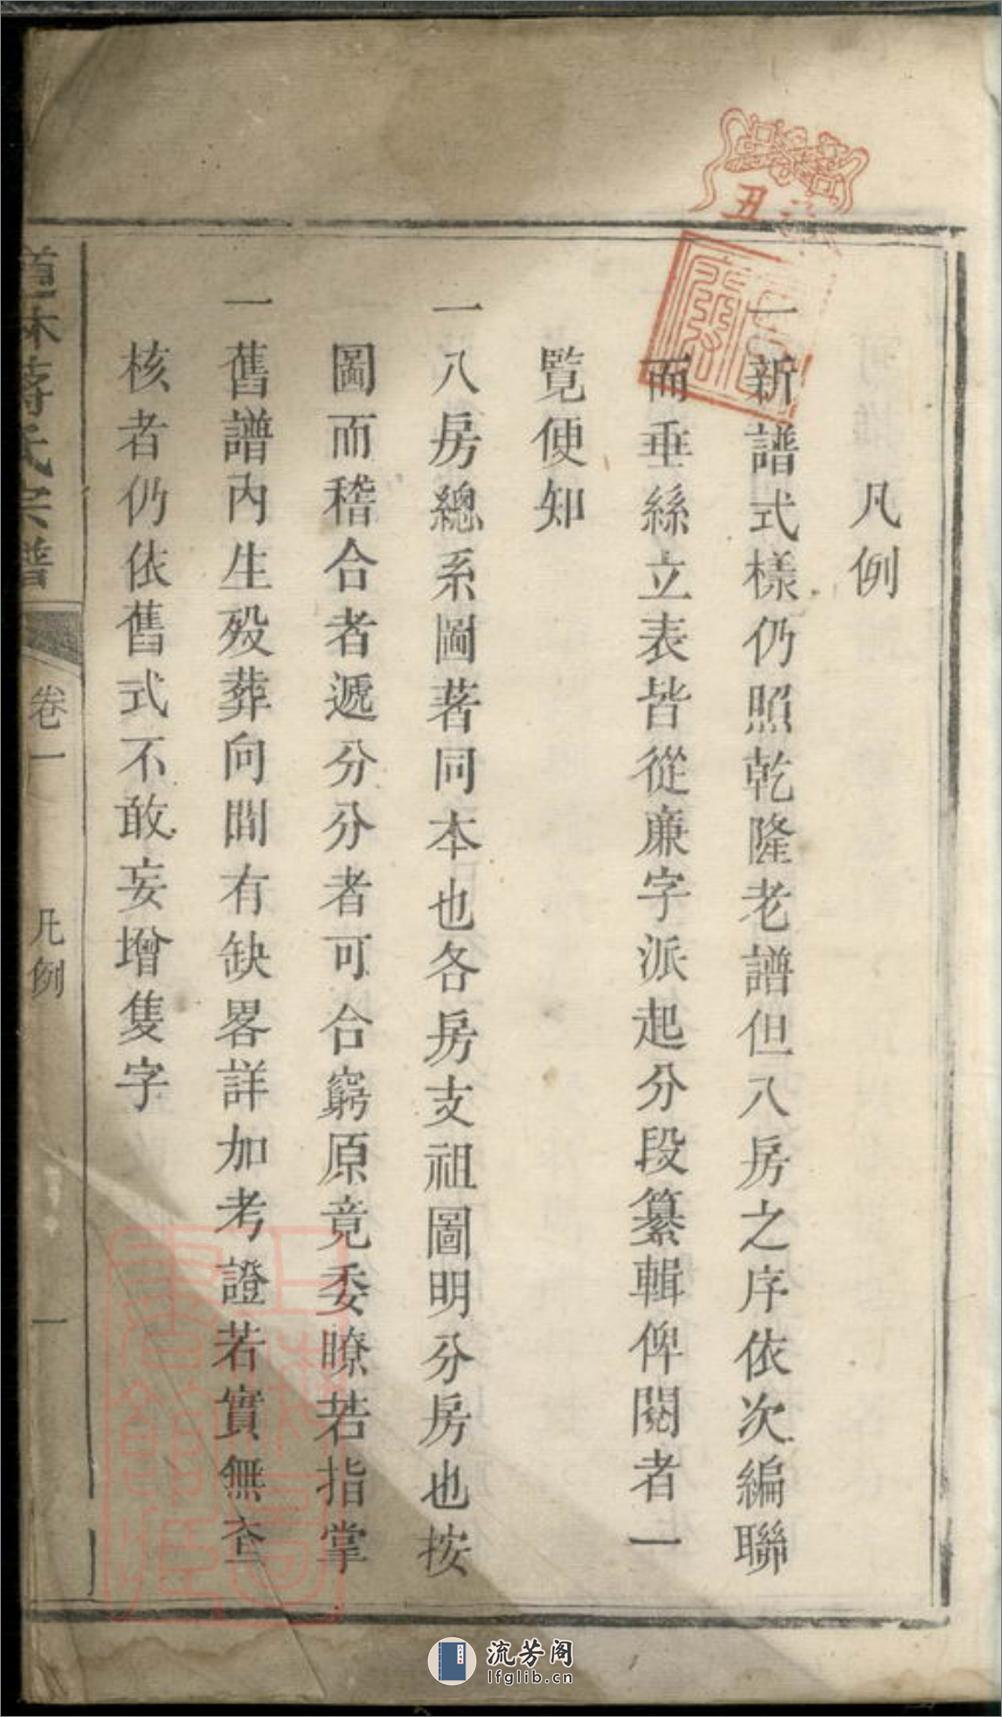 凡例
一新譜式樣仍照乾隆老譜但八房之序依次編聯
而垂絲立表皆從廉字派起分段纂輯俾閱者一
覽便知
一八房總系圖著同本也各房支祖圖明分房也按
圖而稽合者遞分分者可合窮原竟委瞭若指掌
一舊譜內生歿葬向間有缺畧詳加考證若實無查
核者仍依舊式不敢妄增隻字
道林蔣氏宗譜
卷一
凡例
一
丑
流芳阁
lfglib.cn